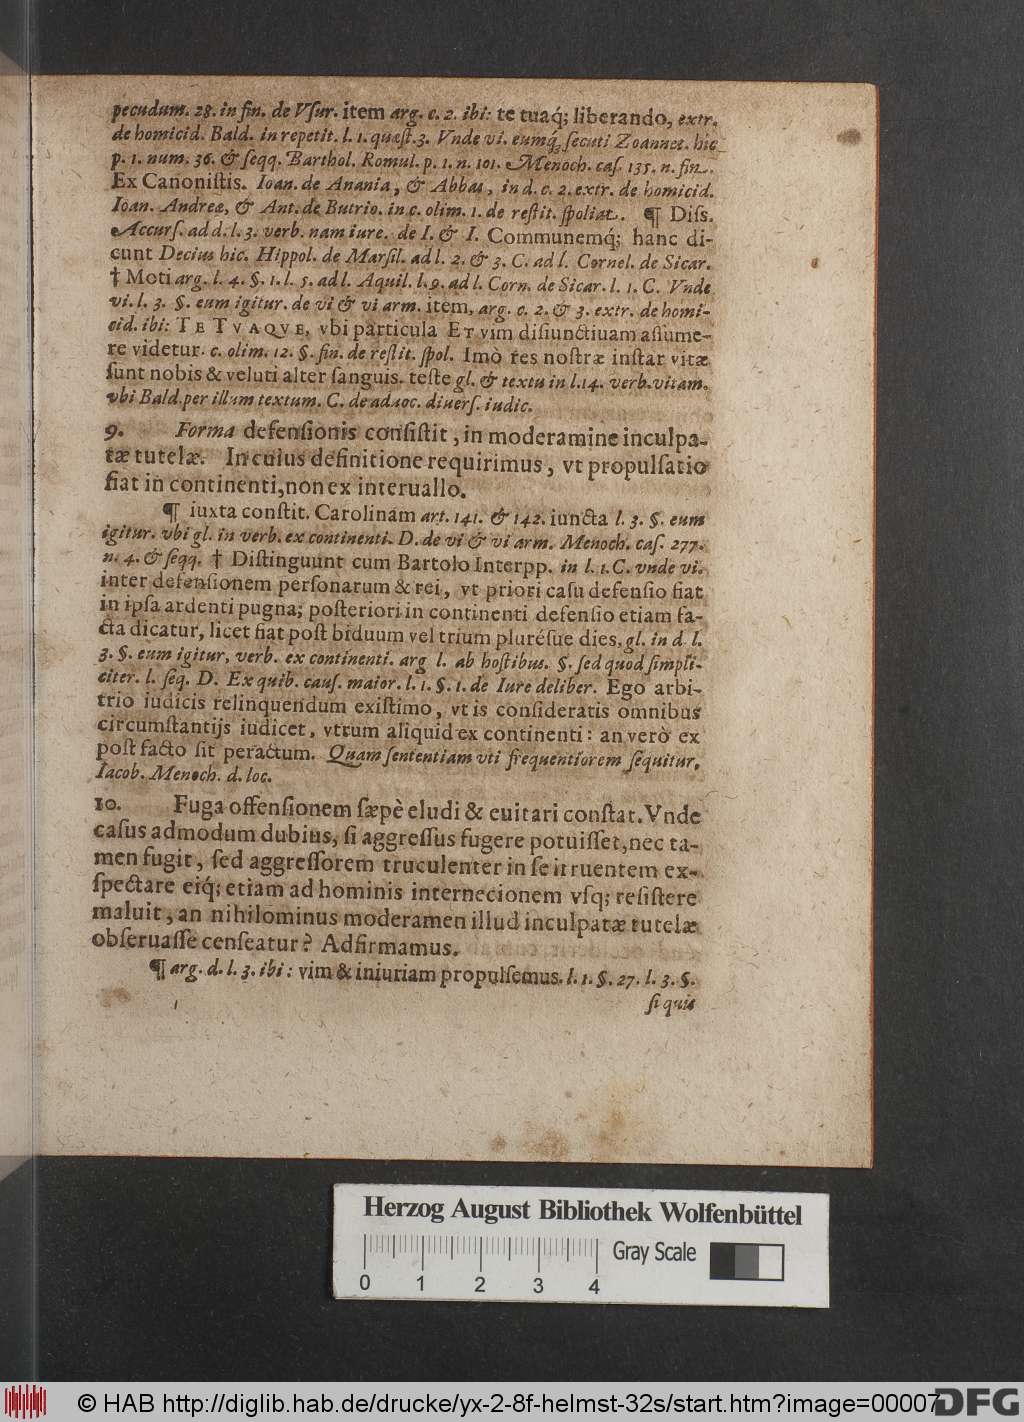 pecudum. 28. in fin. de Vſur. item arg. c. 2. ibi: te tuaq́; liberando, extr.
de homicid. Bald. in repetit. l. 1. quæſt. 3. Vnde vi. eumq́; ſecuti Zoannet. hic
p. 1. num. 36. & ſeqq. Barthol. Romul. p. 1. n. 101. Menoch. caſ. 135. n. fin.
Ex Canoniſtis. Ioan. de Anania, & Abbas, in d. c. 2. extr. de homicid.
Ioan. Andreæ, & Ant. de Butrio. in c. olim. 1. de reſtit. ſpoliat. ¶ Diſs.
Accurſ. ad d. l. 3. verb. nam iure. de I. & I. Communemq́; hanc di-
cunt Decius hic. Hippol. de Marſil. ad l. 2. & 3. C. ad l. Cornel. de Sicar.
† Moti arg. l. 4. §. 1. l. 5. ad l. Aquil. l. 9. ad l. Corn. de Sicar. l. 1. C. Vnde
vi. l. 3. §. eum igitur. de vi & vi arm. item, arg. c. 2. & 3. extr. de homi-
cid. ibi: TE TVAQVE, vbi particula ET vim diſiunctiuam aſſume-
re videtur. c. olim. 12. §. fin. de reſtit. ſpol. Imò res noſtræ inſtar vitæ
ſunt nobis & veluti alter ſanguis. teſte gl. & textu in l. 14. verb. vitam.
vbi Bald. per illum textum. C. de aduoc. diuerſ. iudic.
9. Forma defenſionis conſiſtit, in moderamine inculpa-
tæ tutelæ. In cuius definitione requirimus, vt propulſatio
fiat in continenti, non ex interuallo.
¶ iuxta conſtit. Carolinam art. 141. & 142. iuncta l. 3. §. eum
igitur. vbi gl. in verb. ex continenti. D. de vi & vi arm. Menoch. caſ. 277.
n. 4. & ſeqq. † Diſtinguunt cum Bartolo Interpp. in l. 1. C. vnde vi.
inter defenſionem perſonarum & rei, vt priori caſu defenſio fiat
in ipſa ardenti pugna; poſteriori in continenti defenſio etiam fa-
cta dicatur, licet fiat poſt biduum vel trium plurésue dies. gl. in d. l.
3. §. eum igitur, verb. ex continenti. arg l. ab hoſtibus. §. ſed quod ſimpli-
citer. l. ſeq. D. Ex quib. cauſ. maior. l. 1. §. 1. de Iure deliber. Ego arbi-
trio iudicis relinquendum exiſtimo, vt is conſideratis omnibus
circumſtantijs iudicet, vtrum aliquid ex continenti: an verò ex
poſt facto ſit peractum. Quam ſententiam vti frequentiorem ſequitur.
Iacob. Menoch. d. loc.
10. Fuga offenſionem ſæpè eludi & euitari conſtat. Vnde
caſus admodum dubius, ſi aggreſſus fugere potuiſſet, nec ta-
men fugit, ſed aggreſſorem truculenter in ſe irruentem ex-
ſpectare eiq́; etiam ad hominis internecionem vſq; reſiſtere
maluit, an nihilominus moderamen illud inculpatæ tutelæ
obſeruaſſe cenſeatur? Adfirmamus.
¶ arg. d. l. 3. ibi: vim & iniuriam propulſemus. l. 1. §. 27. l. 3. §.
ſi quis
Herzog August Bibliothek Wolfenbüttel
Gray Scale
0 1 2 3 4
© HAB http://diglib.hab.de/drucke/yx-2-8f-helmst-32s/start.htm?image=00007
DFG